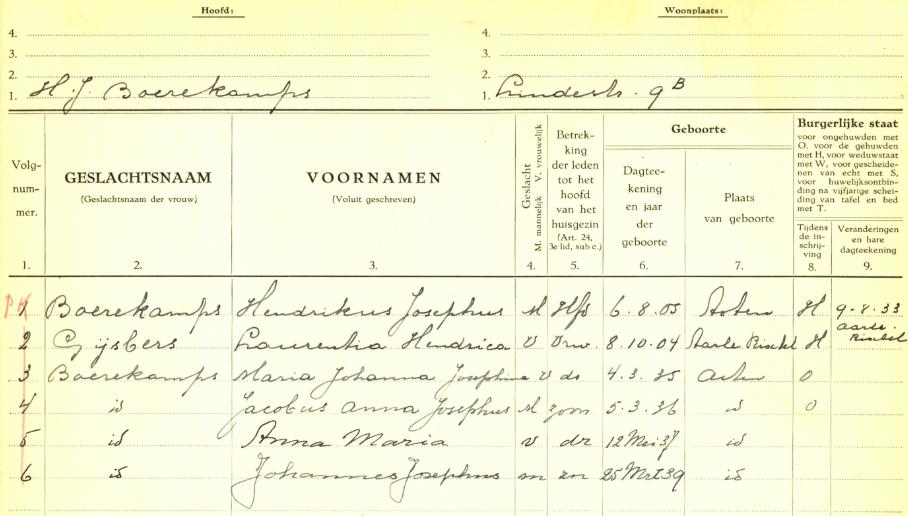 Hoofd:
Woonplaats:
4.
4.
3.
3.
2.
2.
1. H. J. Boerekamps
1. Lindestr. 9B
Volg-
num-
mer.
GESLACHTSNAAM
(Geslachtsnaam der vrouw)
VOORNAMEN
(Voluit geschreven)
Geslacht
M. mannelijk V. vrouwelijk
Betrek-
king
der leden
tot het
hoofd
van het
huisgezin
(Art. 24,
3e lid, sub c.)
Geboorte
Dagtee-
kening
en jaar
der
geboorte
Plaats
van geboorte
Burgerlijke staat
voor ongehuwden met
O, voor de gehuwden
met H, voor weduwstaat
met W, voor gescheide-
nen van echt met S,
voor huwelijksontbin-
ding na vijfjarige schei-
ding van tafel en bed
met T.
Tijdens
de in-
schrij-
ving
Veranderingen
en hare
dagteekening
1. 2. 3. 4. 5. 6. 7. 8. 9.
1 Boerekamps Hendrikus Josephus M Hfd 6.8.05 Asten H 9-8-33
Aarle-
Rixtel
2 Gijsbers Laurentia Hendrica V Vrw. 8.10.04 Aarle Rixtel H
3 Boerekamps Maria Johanna Josephina V dr 4.3.35 Asten O
4 id Jacobus Anna Josephus M zoon 5.3.36 id O
5 id Anna Maria v dr 12 Mei 37 id
6 id Johannes Josephus m zn 25 Mrt 39 id